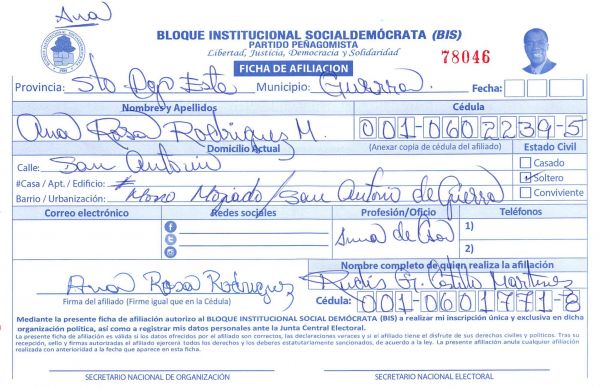 Ana
BLOQUE INSTITUCIONAL SOCIALDEMÓCRATA (BIS)
PARTIDO PEÑAGOMISTA
Libertad, Justicia, Democracia y Solidaridad
78046
FICHA DE AFILIACION
Provincia: Sto Dgo Este Municipio: Guerra. Fecha:
Nombres y Apellidos Cédula
Ana Rosa Rodriguez M. 001-0602239-5
Domicilio Actual (Anexar copia de cédula del afiliado) Estado Civil
Calle: San Antonio Casado
#Casa / Apt. / Edificio: # Soltero
Barrio / Urbanización: Mono Mojado/San Antonio de Guerra Conviviente
Correo electrónico Redes sociales Profesión/Oficio Teléfonos
de 1)
2)
Nombre completo de quien realiza la afiliación
Ana Rosa Rodriguez G. Castillo Martinez
Firma del afiliado (Firme igual que en la Cédula) Cédula: 001-0601771-8
Mediante la presente ficha de afiliación autorizo al BLOQUE INSTITUCIONAL SOCIAL DEMÓCRATA (BIS) a realizar mi inscripción única y exclusiva en dicha
organización política, así como a registrar mis datos personales ante la Junta Central Electoral.
La presente ficha de afiliación es válida si los datos ofrecidos por el afiliado son correctos, las declaraciones veraces y si el afiliado tiene el disfrute de sus derechos civiles y políticos. Tras su
recepción, sello y firmas autorizadas el afiliado ejercerá todos los derechos y los deberes estatutariamente sancionados, de acuerdo a la ley. La presente afiliación anula cualquier afiliación
realizada con anterioridad a la fecha que aparece en esta ficha.
SECRETARIO NACIONAL DE ORGANIZACIÓN SECRETARIO NACIONAL ELECTORAL